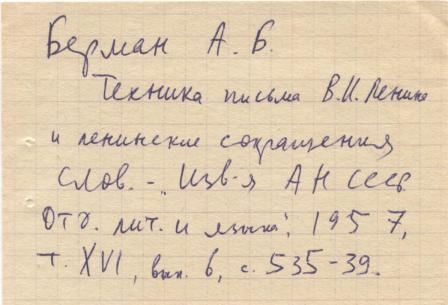 Берман А. Б.
Техника письма В.И. Ленина
и ленинские сокращения
слов. – „Изв-я АН СССР
Отд. лит. и языка", 1957,
т. XVI, вып. 6, с. 535-39.